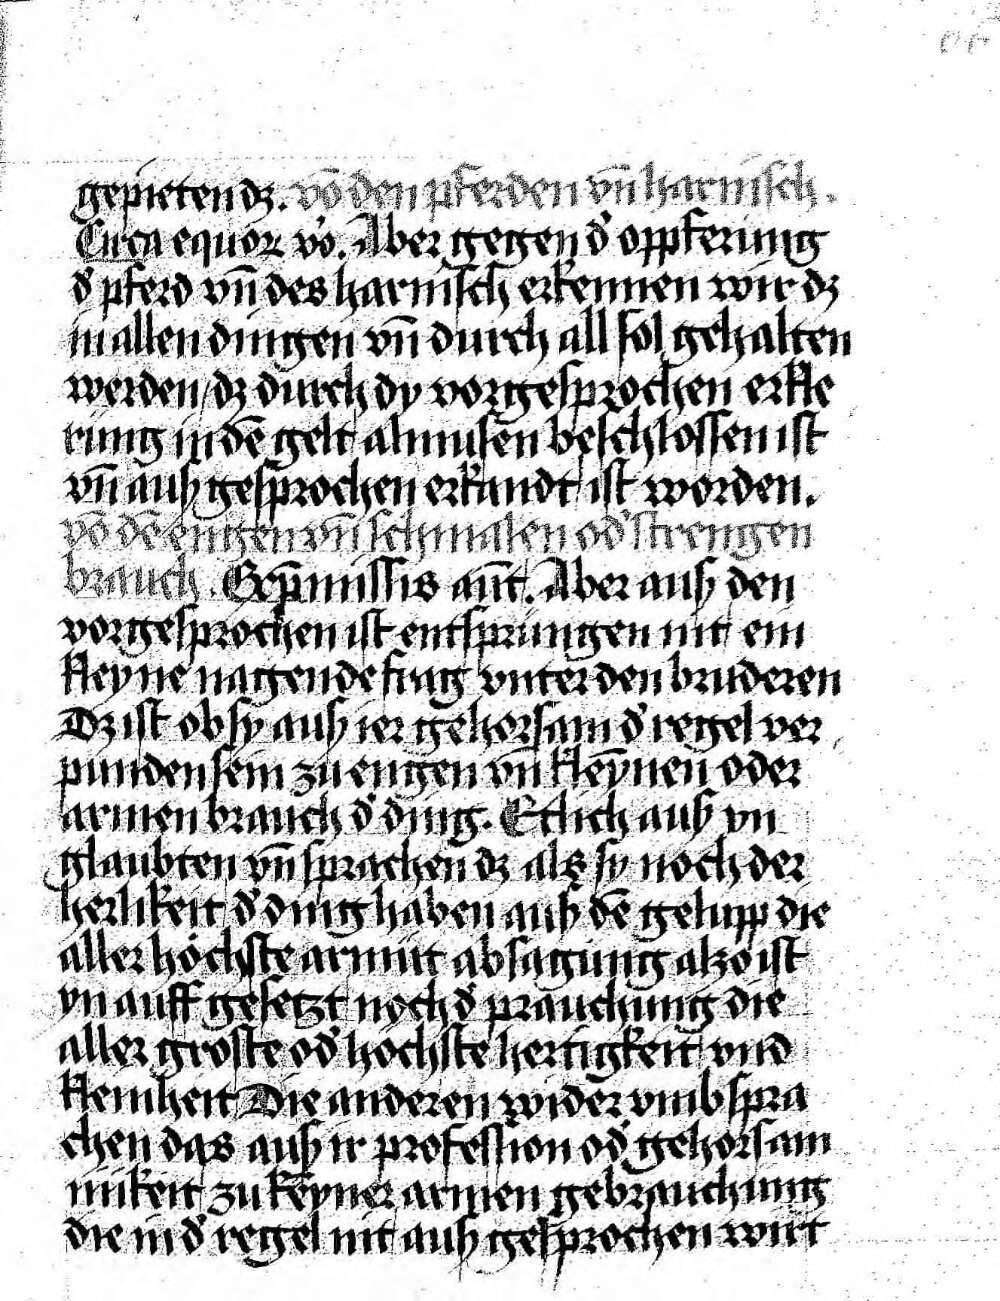 gepietendz. võ den pferden vñ harnisch.
Circa equoꝝ vo. Aber gegen d' oppferung
d' pferd vñ des harnisch erkennen wir dz
in allen dingen vñ durch all sol gehalten
werden / dz durch dy vorgesprochen erkle
rung in dē gelt almusen beschlossen ist
vñ auß gesprochen erkandt ist worden.
võ dē engen vñ schmalen od' strengen
brauch. Ex p̄missis aūt. Aber auß den
vorgesprochen ist entsprungen nit ein
kleyne nagende frag vnter den bruderen
Dz ist ob sy auß ier gehorsam d' regel ver
punden sein zu engen vñ kleynen oder
armen brauch d' ding. Etlich auß yn
glaubten vñ sprachen dz als sy noch der
herlikeit d' ding haben auß dē gelupp die
aller höchste armut absagung alzo ist
yn auff gesetzt noch d' prauchung die
aller groste od' hochste hertigkeit vnd
kleinheit Die anderen wider vmb spra
chen das auß ir profession od' gehorsam
mikeit zu keyner armen gebrauchung
die in d' regel nit auß gesprochen wirt